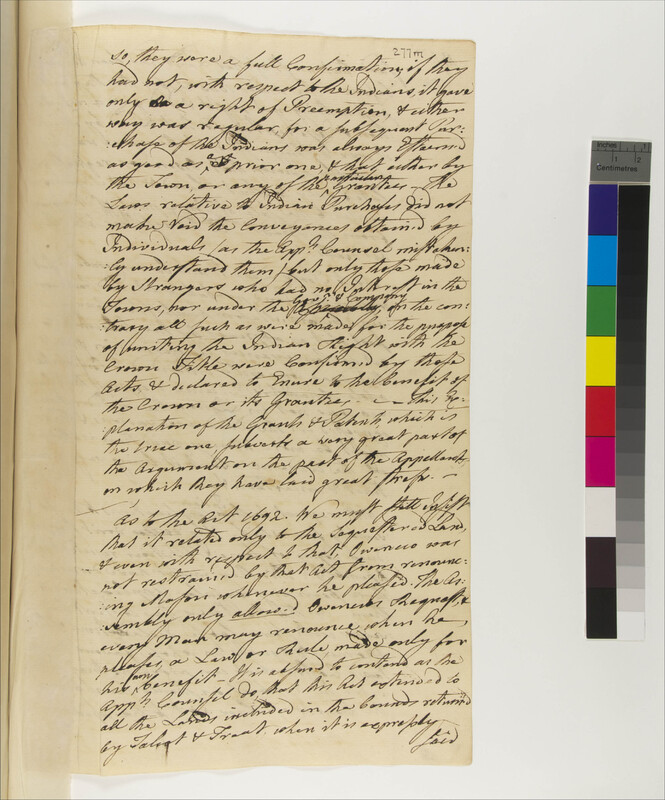 277m
so, they were a full Confirmation, if they
had not, with respect to the Indians, it gave
only a right of Preemption, & either
way was regular, for a subsequent Pur-
:chase of the Indians was always Esteemed
as good as a prior one & that either by
the Town, or any of the Grantees – The
Laws relative to Indian Purchases did not
make Void the Conveyances obtained by
Individuals (as the Appts. Counsel mistaken-
ly understand them) but only those made
by Strangers who had no Interest in the
Towns, nor under the Govr. & Company, on the con-
:trary all such as were made for the purpose
of uniting the Indian Right with the
Crown Title were Confirmed by those
Acts & declared to Enure to the benefit of
the Crown or its Grantees. – This Ex-
planation of the Grants & Patents which is
the true one subverts a very great part of
the Argument on the part of the Appellants
on which they have laid great stress. –
As to the Act 1692. We must still insist
that it related only to the Sequestered Land,
& even with respect to that, Oweneco was
not restrained by that Act from renounc-
:ing Mason whenever he pleased. The As-
sembly only allowed Owenecos Request, &
every Man may renounce when he
pleases, a Law or Rule made only for
his own benefit – It is absurd to contend as the
Appts. Counsel do, that this Act extended to
all the Lands included in the bounds returned
by Talcot & Treat, when it is expressly
said